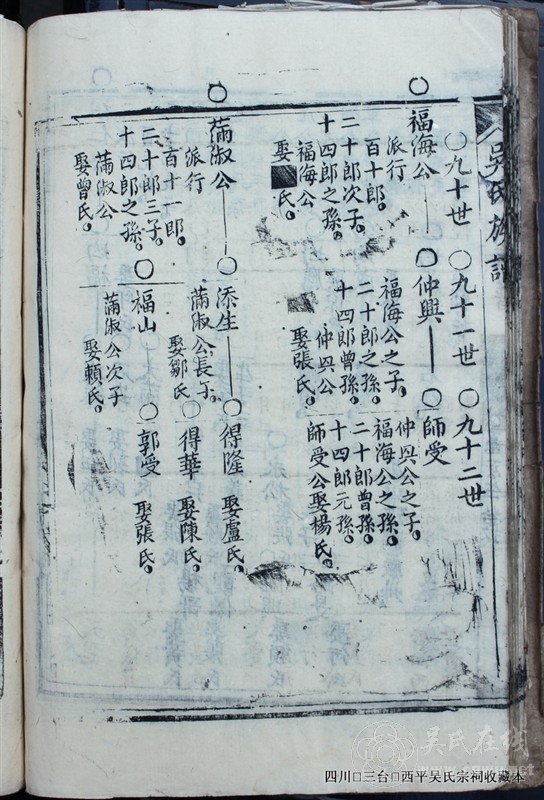 吳氏族譜
○九十世 ○九十一世 ○九十二世
○福海公 ○仲興 ○師受
派行
百十郎。
二十郎次子。
十四郎之孫。
福海公
娶 氏。
福海公之子。
二十郎之孫。
十四郎曾孫。
仲興公
娶張氏。
仲興公之子。
福海公之孫。
二十郎曾孫。
十四郎元孫。
師受公娶楊氏。
○滿淑公 ○添生 ○得隆 娶盧氏。
派行
百十一郎。
二十郎三子。
十四郎之孫。
滿淑公
娶曾氏。
滿淑公長子。
娶鄒氏
○得華 娶陳氏。
○福山 ○郭受 娶張氏。
滿淑公次子
娶賴氏。
吴氏在线
四川□三台□西平吴氏宗祠收藏本